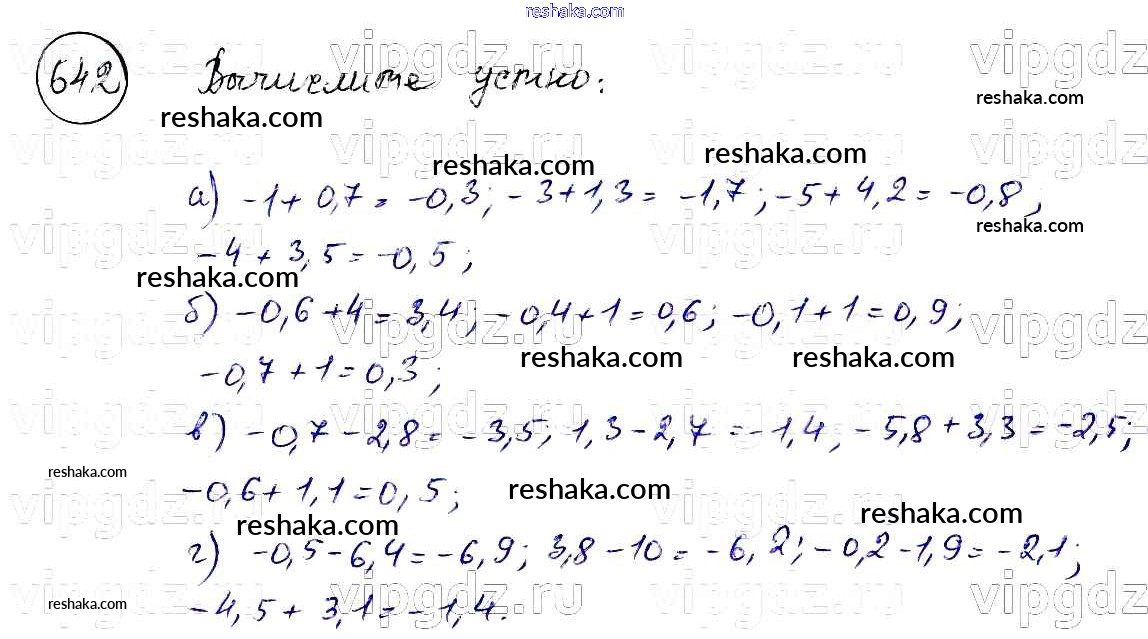 reshaka.com
642 Вычислите устно:
vipgdz.ru vipgdz.ru vipgdz.ru vipgdz
reshaka.com
reshaka.com
vipgdz.ru vipgdz.ru vipgdz.ru vipgdz
reshaka.com reshaka.com
а) -1 + 0,7 = -0,3; -3 + 1,3 = -1,7; -5 + 4,2 = -0,8;
vipgdz.ru vipgdz.ru vipgdz.ru vipgdz
reshaka.com
-4 + 3,5 = -0,5;
reshaka.com
б) -0,6 + 4 = 3,4; -0,4 + 1 = 0,6; -0,1 + 1 = 0,9;
vipgdz.ru vipgdz.ru vipgdz.ru vipgdz
reshaka.com reshaka.com
-0,7 + 1 = 0,3;
в) -0,7 - 2,8 = -3,5; 1,3 - 2,7 = -1,4; -5,8 + 3,3 = -2,5;
vipgdz.ru vipgdz.ru vipgdz.ru vipgdz
reshaka.com
-0,6 + 1,1 = 0,5;
reshaka.com
vipgdz.ru vipgdz.ru vipgdz.ru vipgdz
reshaka.com reshaka.com
г) -0,5 - 6,4 = -6,9; 3,8 - 10 = -6,2; -0,2 - 1,9 = -2,1;
reshaka.com
-4,5 + 3,1 = -1,4.
vipgdz.ru vipgdz.ru vipgdz.ru vipgdz
reshaka.com